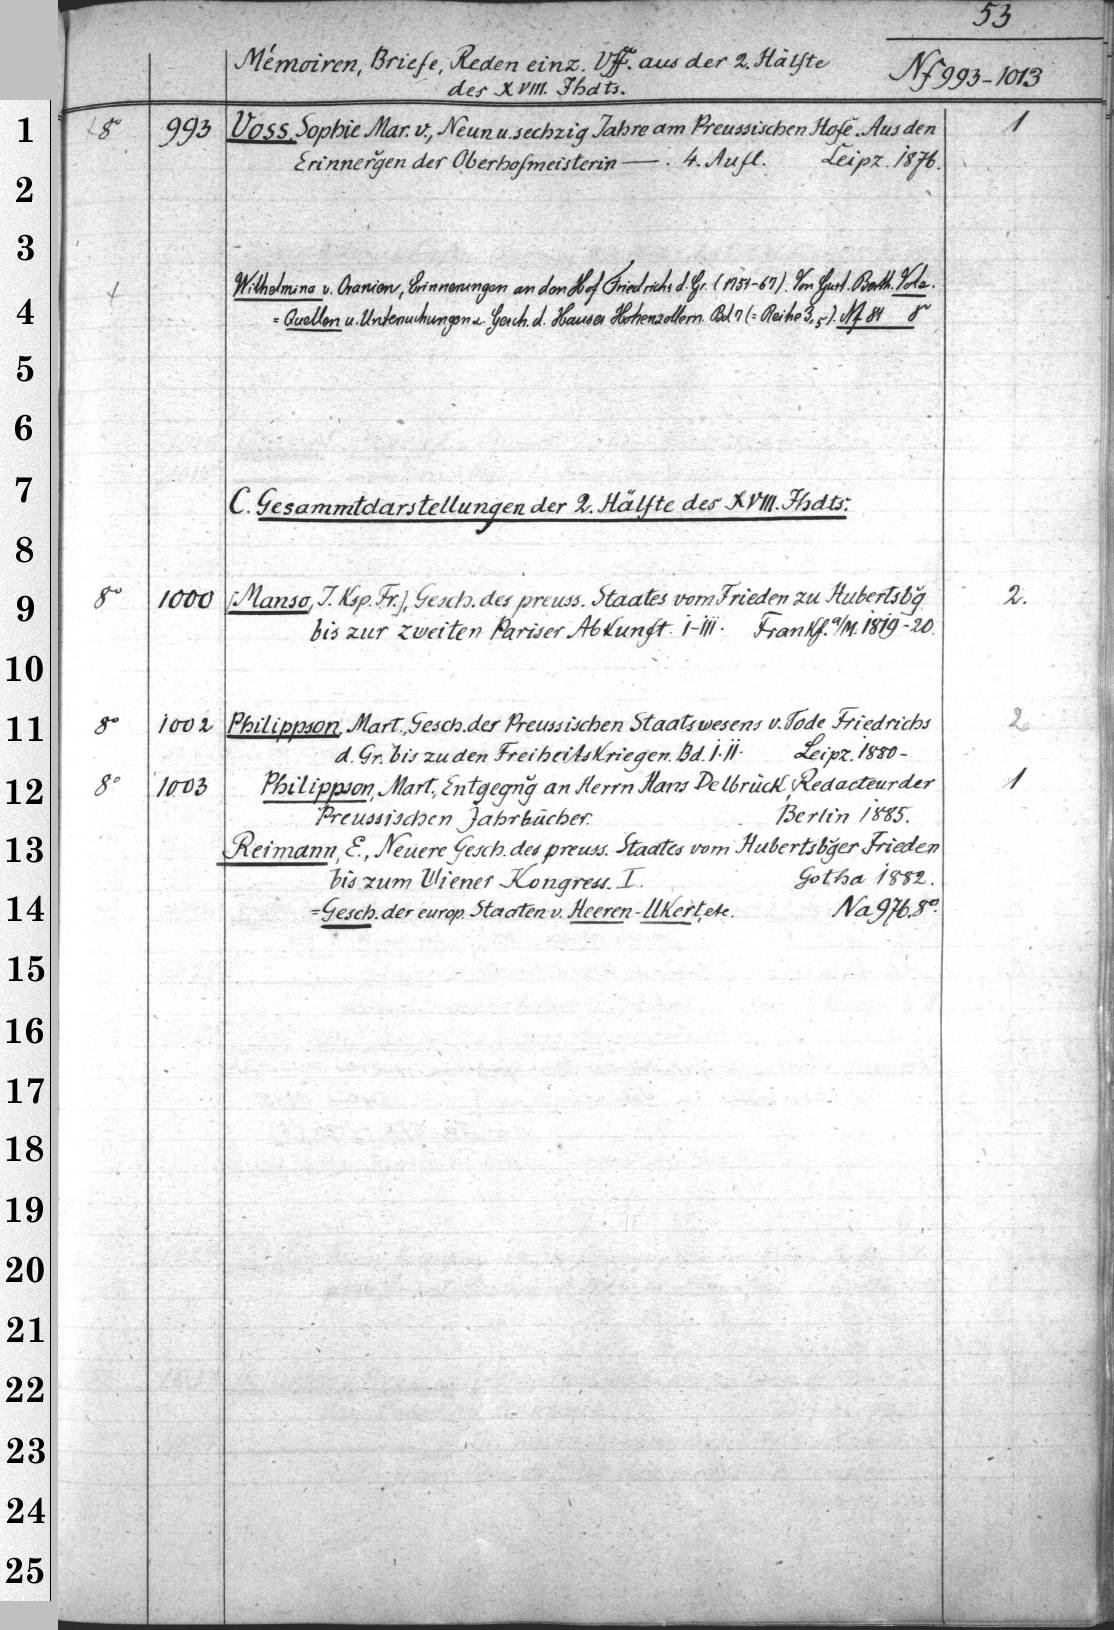 53
Mémoiren, Briefe, Reden einz. Vff. aus der 2. Hälfte
des XVIII. Jhdts.
Nf 993-1013
1 8° 993 Voss, Sophie Mar. v., Neun u. sechzig Jahre am Preussischen Hofe. Aus den 1
Erinnerg̃en der Oberhofmeisterin —. 4. Aufl. Leipz. 1876.
2
3
Wilhelmina v. Oranien, Erinnerungen an den Hof Friedrichs d. Gr. (1751-67). Von Gust. Berth. Volz.
4 = Quellen u. Untersuchungen z. Gesch. d. Hauses Hohenzollern. Bd 7 (= Reihe 3, 5). Nf 81 8°
5
6
7 C. Gesammtdarstellungen der 2. Hälfte des XVIII. Jhdts.
8
9 8° 1000 [Manso, J. Ksp. Fr.], Gesch. des preuss. Staates vom Frieden zu Hubertsbg̃ 2.
bis zur zweiten Pariser Abkunft. I-III. Frankf. a/M. 1819-20.
10
11 8° 1002 Philippson, Mart., Gesch. der Preussischen Staatswesens v. Tode Friedrichs 2
d. Gr. bis zu den Freiheitskriegen. Bd. I. II. Leipz. 1880-
12 8° 1003 Philippson, Mart., Entgegng̃ an Herrn Hans Delbrück, Redacteur der 1
Preussischen Jahrbücher. Berlin 1885.
13 Reimann, E., Neuere Gesch. des preuss. Staates vom Hubertsbg̃er Frieden
bis zum Wiener Kongress. I. Gotha 1882.
14 = Gesch. der europ. Staaten v. Heeren-Ukert, etc. Na 976. 8°.
15
16
17
18
19
20
21
22
23
24
25